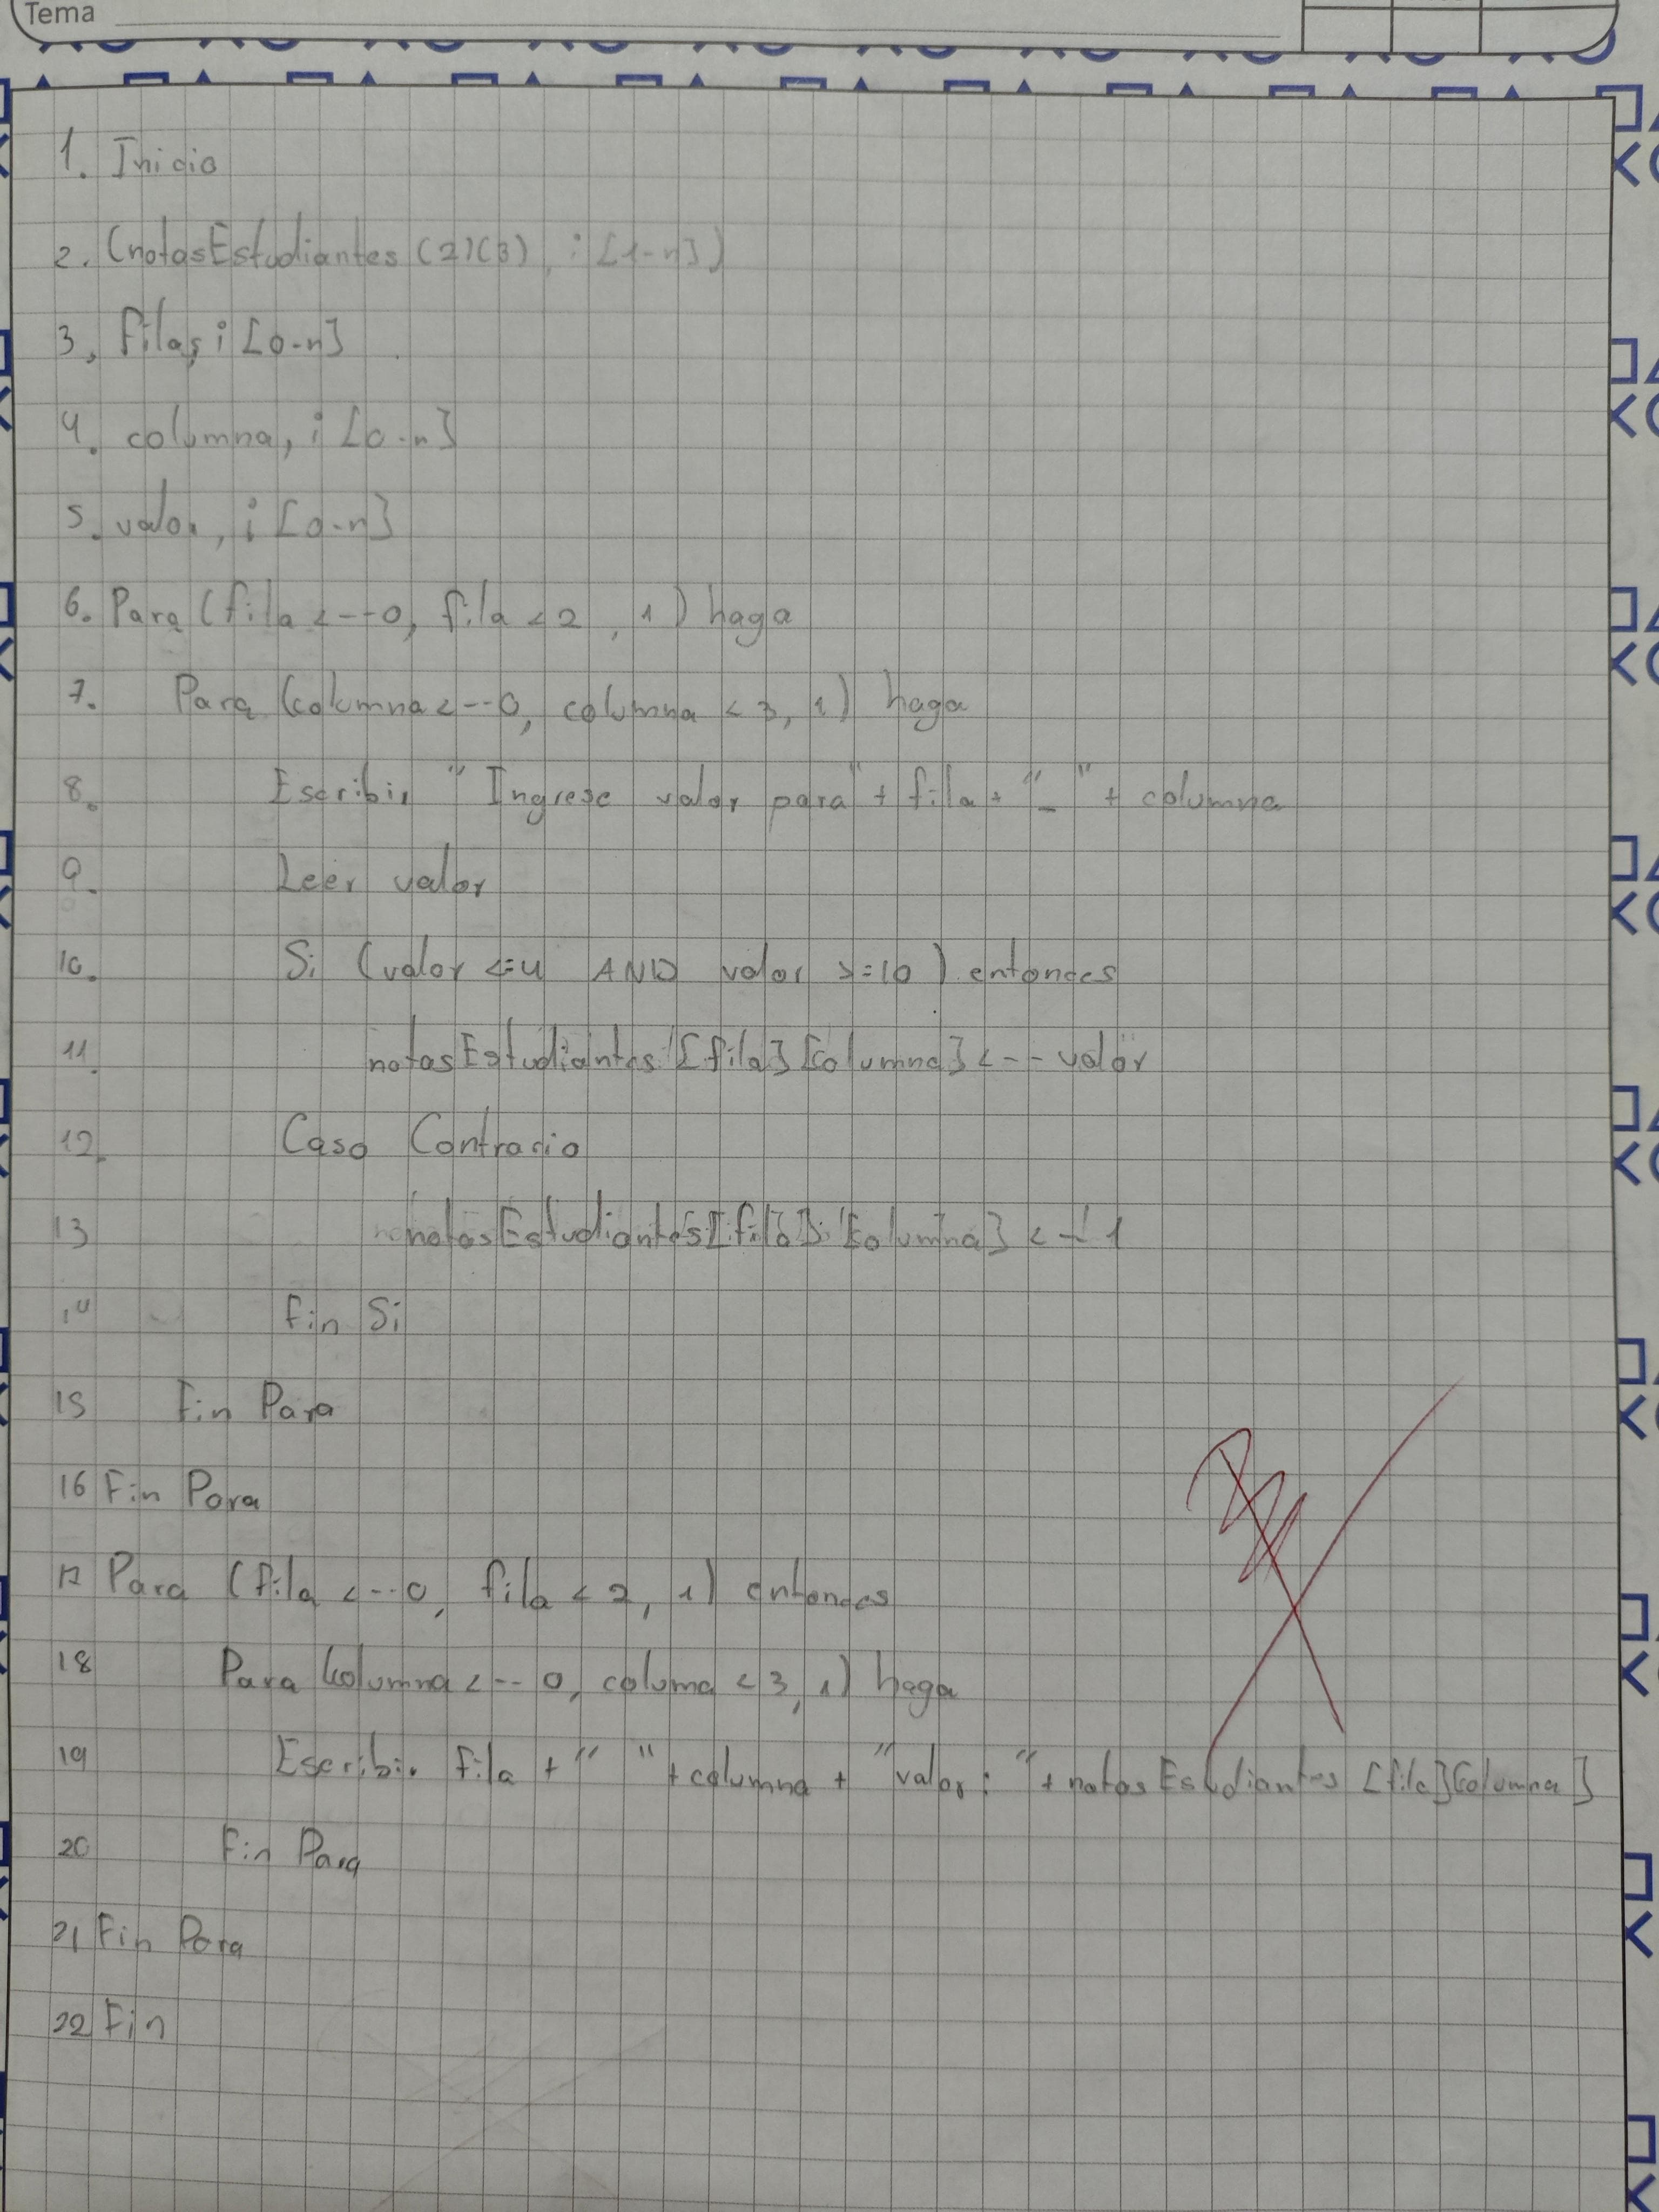 Tema
1. Inicio
2. (notasEstudiantes (2)(3), i [1-n])
3, filas, i [0-n]
4. columna, i [0-n]
5. valor, i [0-n]
6. Para (fila <--0, fila <2, 1) haga
7. Para (columna <--0, columna < 3, 1) haga
8. Escribir "Ingrese valor para" + fila + "_" + columna
9. Leer valor
10. Si (valor <=4 AND valor >=10) entonces
11. notasEstudiantes [fila] [columna] <-- valor
12. Caso Contrario
13 notasEstudiantes [fila] [columna] <-- 1
14 Fin Si
15 Fin Para
16 Fin Para
17 Para (fila <--0, fila < 2, 1) entonces
18 Para (columna <-- 0, columa < 3, 1) haga
19 Escribir fila + " " + columna + "valor: " + notasEstudiantes [fila] [columna]
20 Fin Para
21 Fin Para
22 Fin